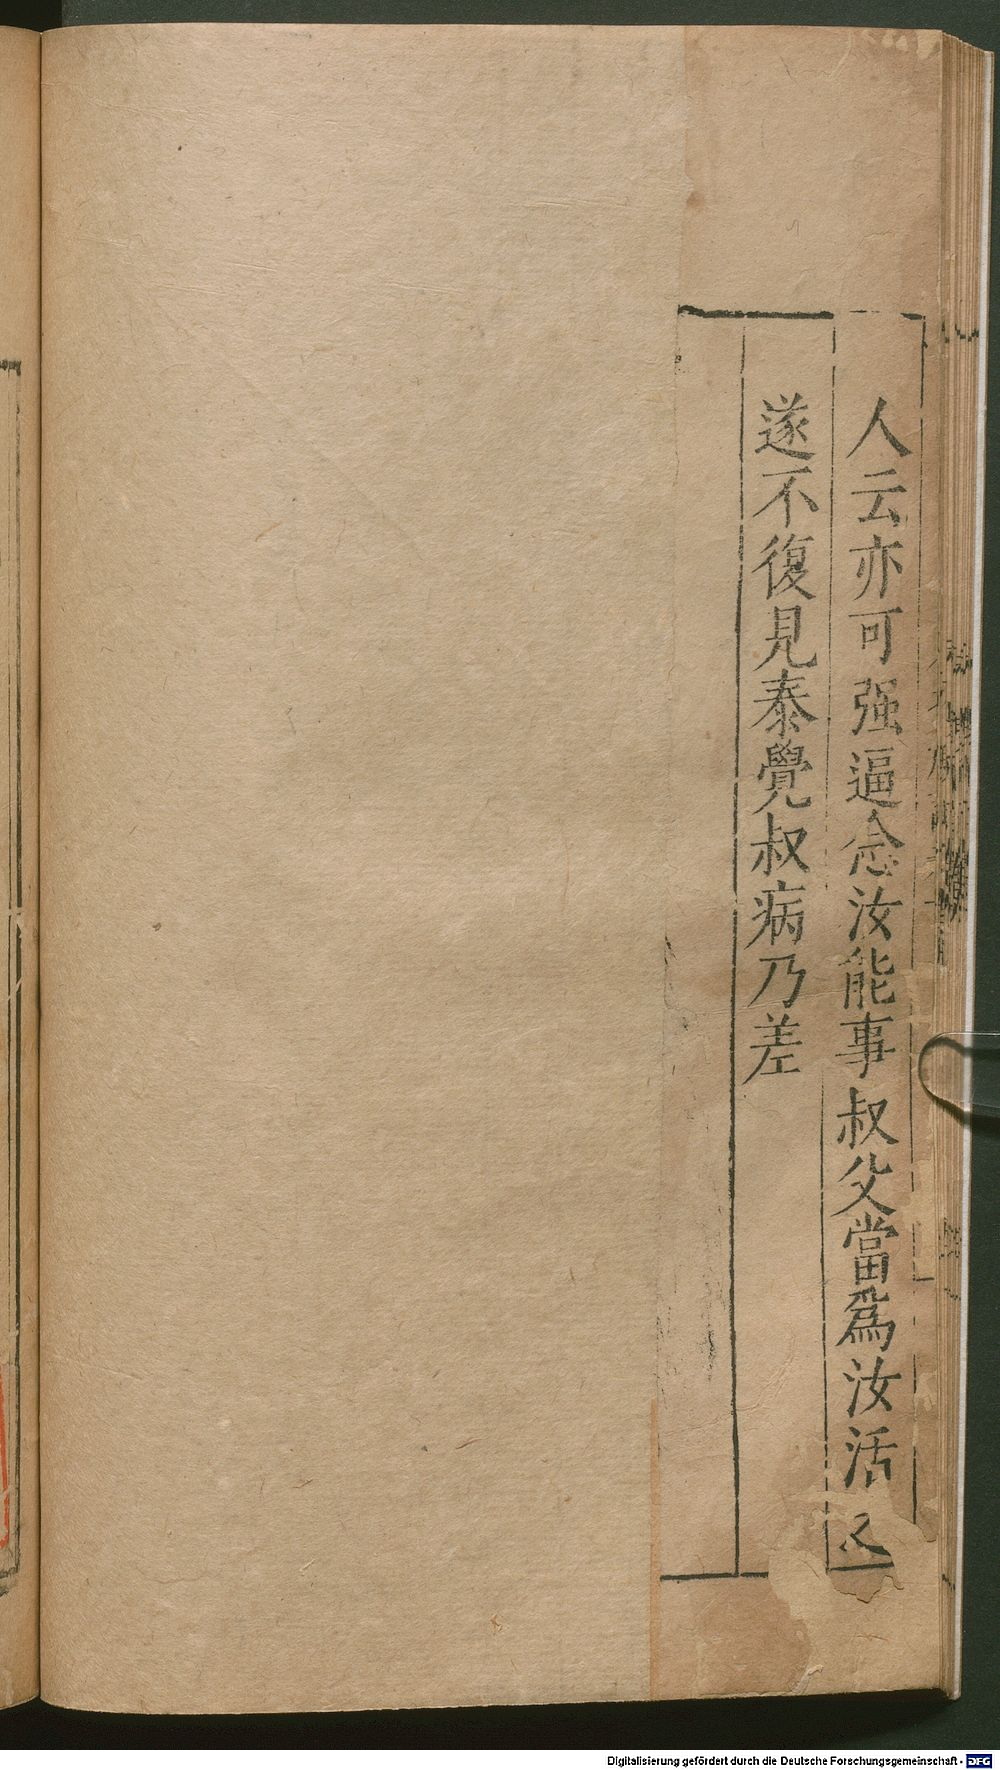 人云亦可强逼念汝能事叔父當爲汝活之
遂不復見泰覺叔病乃差
Digitalisierung gefördert durch die Deutsche Forschungsgemeinschaft - DFG